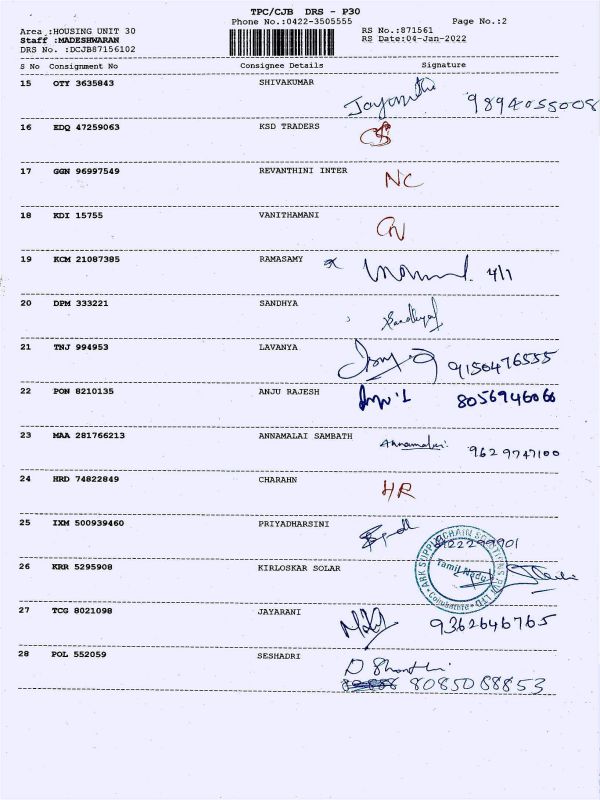 TPC/CJB DRS - P30
Phone No.:0422-3505555 Page No.:2
Area :HOUSING UNIT 30 RS No.:871561
Staff :MADESHWARAN RS Date:04-Jan-2022
DRS No. :DCJB87156102
S No Consignment No Consignee Details Signature
15 OTY 3635843 SHIVAKUMAR Jayanthi 9894055008
16 EDQ 47259063 KSD TRADERS
17 GGN 96997549 REVANTHINI INTER NC
18 KDI 15755 VANITHAMANI
19 KCM 21087385 RAMASAMY 4/1
20 DPM 333221 SANDHYA
21 TNJ 994953 LAVANYA 9150476555
22 PON 8210135 ANJU RAJESH 8056946066
23 MAA 281766213 ANNAMALAI SAMBATH Annamalai 9629747100
24 HRD 74822849 CHARAHN HR
25 IXM 500939460 PRIYADHARSINI
26 KRR 5295908 KIRLOSKAR SOLAR
ARK SUPPLY CHAIN SOLUTIONS PVT LTD
Tamil Nadu
Coimbatore
27 TCG 8021098 JAYARANI 9362646765
28 POL 552059 SESHADRI D Shanthi
8085088853